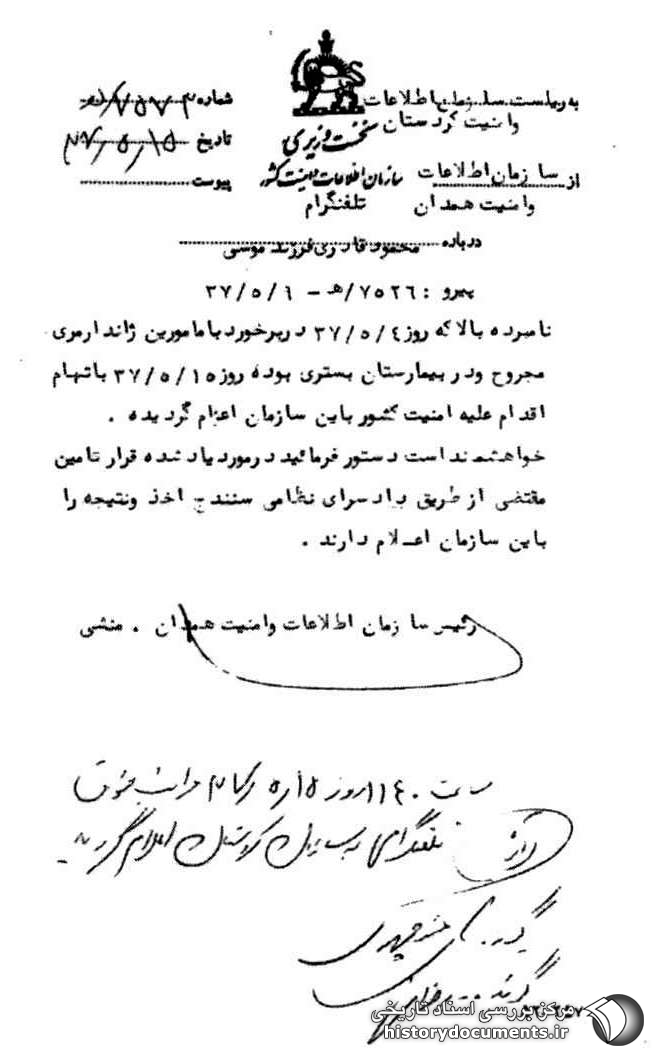 به ریاست سازمان اطلاعات
وامنیت کردستان
شماره
نخست وزیری
تاریخ ۳۷٫۵٫۱۵
از سازمان اطلاعات
سازمان اطلاعات و امنیت کشور
پیوست
وامنیت همدان
تلفنگرام
درباره محمود قادری فرزند موسی
پیرو : ۷۵۲۶/هـ - ۳۷/۵/۶
نامبرده بالا که روز ۳۷/۵/۴ در برخورد با مامورین ژاندارمری
مجروح ودر بیمارستان بستری بوده روز ۳۷/۵/۱۵ باتهام
اقدام علیه امنیت کشور باین سازمان اعزام گردیده .
خواهشمند است دستور فرمائید در مورد یاد شده قرار تامین
مقتضی از طریق دادسرای نظامی سنندج اخذ ونتیجه را
باین سازمان اعلام دارند .
رئیس سازمان اطلاعات وامنیت همدان . منشی
ساعت ۱۱۴۰ روز ۵٫۱۵ مراتب فوق
تلفنگرامی به سازمان کردستان اعلام گردید
مرکز بررسی اسناد تاریخی
historydocuments.ir